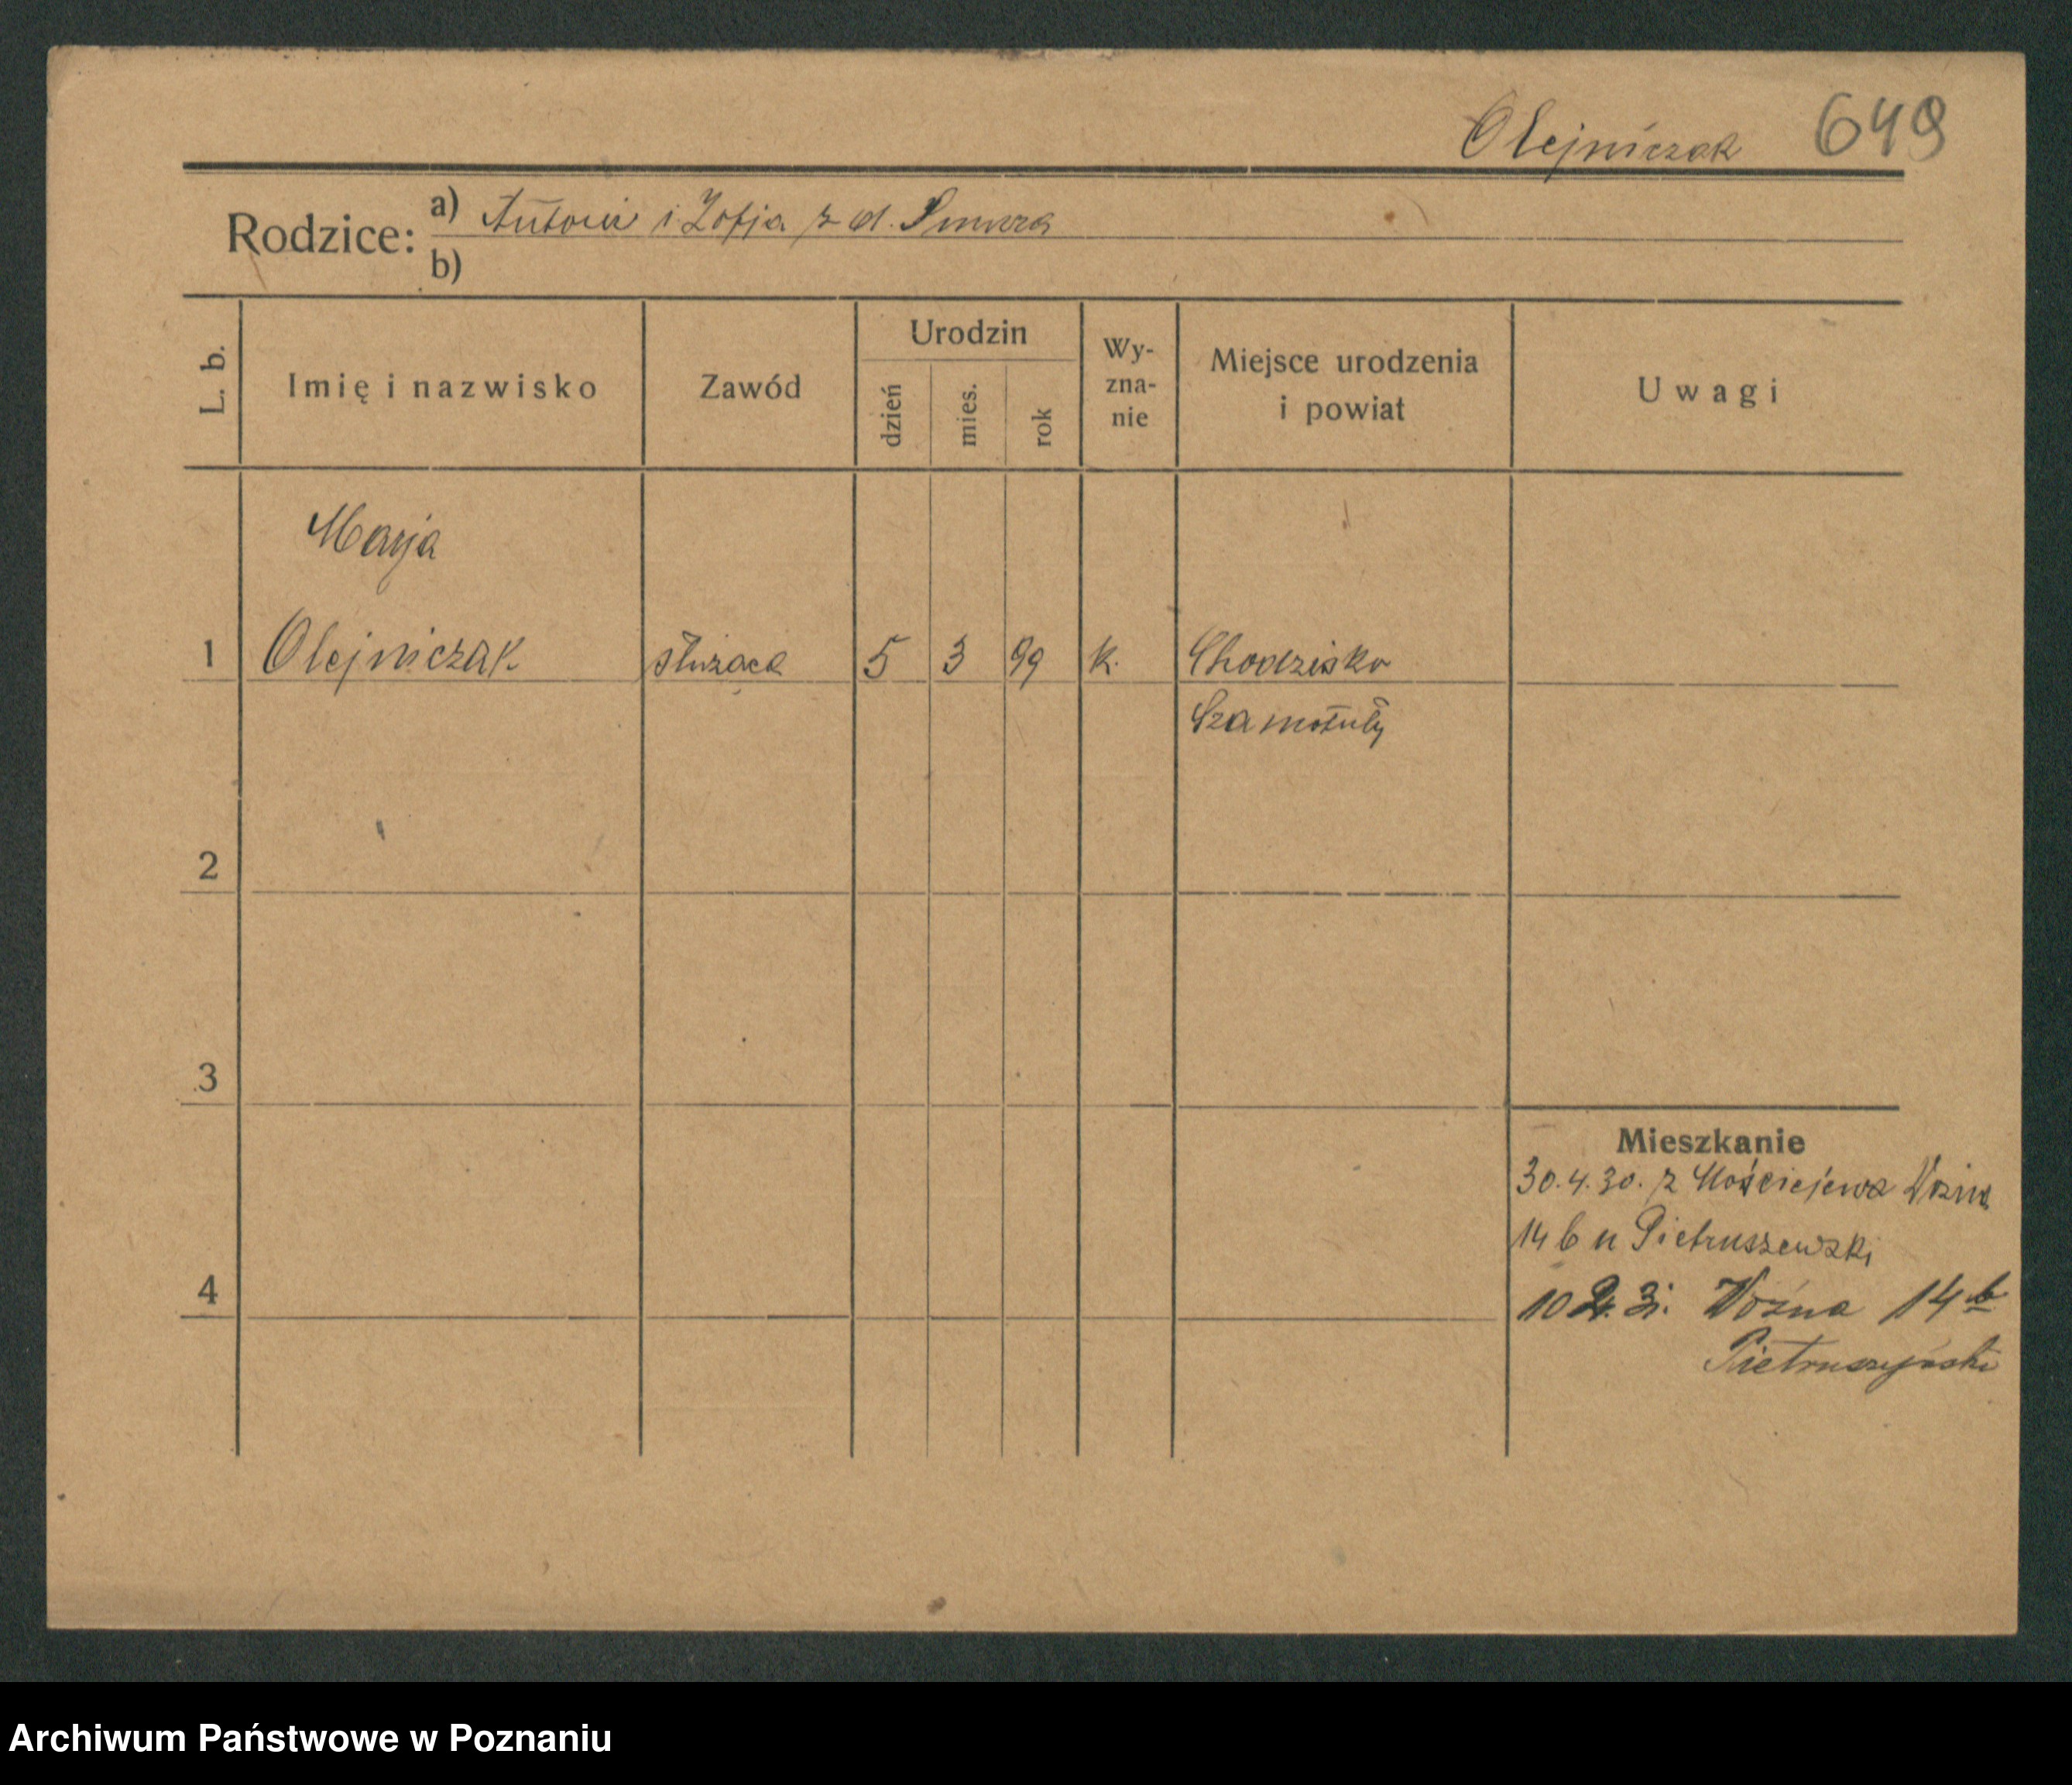 Olejniczak 649
Rodzice: a) Antoni i Zofja z d. Smura
b)
L. b. Imię i nazwisko Zawód Urodzin dzień mies. rok Wy-zna-nie Miejsce urodzenia i powiat Uwagi
Marja
1 Olejniczak służąca 5 3 99 k. Chodzisko
Szamotuły
2
3
Mieszkanie
30.4.30. z Mościejewa Woźna
14 b u Pietruszewski
4
10 2. 31. Woźna 14 b
Pietruszyński
Archiwum Państwowe w Poznaniu